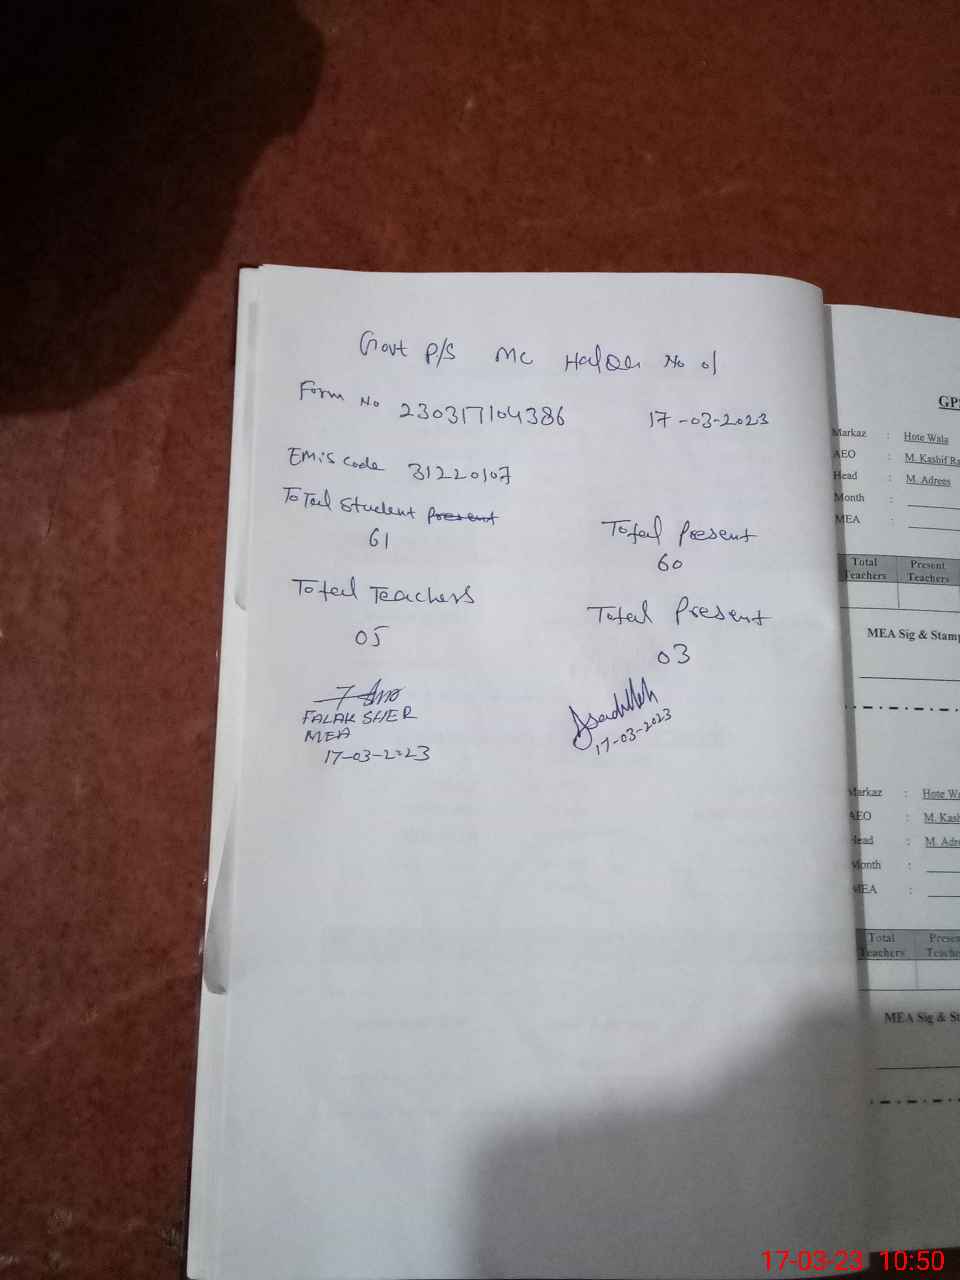 Govt P/S MC Halqa No 01
Form No 230317104386 17-03-2023
EMIS code 31220107
Total Student present
61
Total present
60
Total Teachers
05
Total Present
03
FALAK SHER
MEA
17-03-2023
Asadullah
17-03-2023
GP
Markaz : Hote Wala
AEO : M. Kashif Ra
Head : M. Adrees
Month :
MEA :
Total Teachers
Present Teachers
MEA Sig & Stamp
Markaz : Hote Wa
AEO : M. Kash
Head : M. Adre
Month :
MEA :
Total Teachers
Presen Teache
MEA Sig & St
17-03-23 10:50